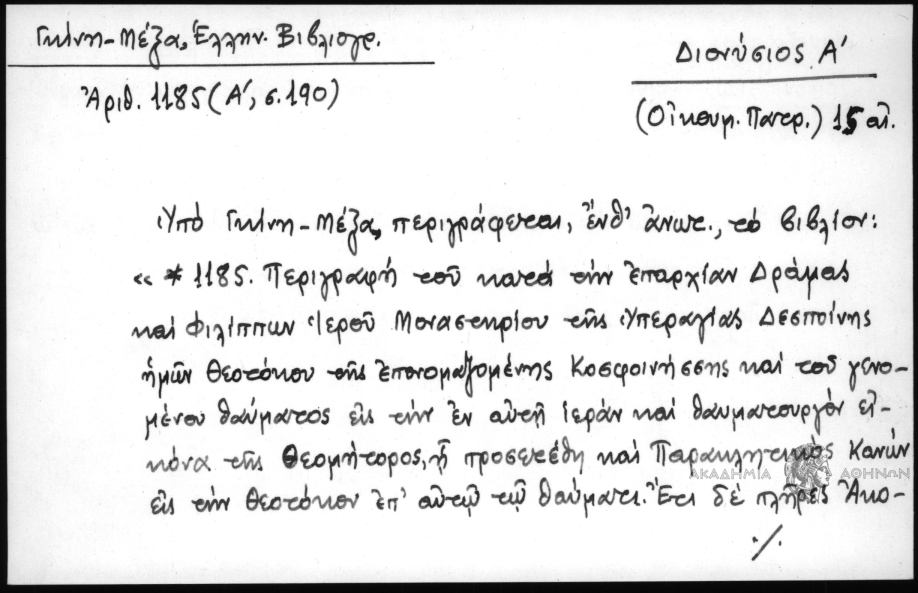 Γκίνη-Μέξα, Ἑλλην. Βιβλιογρ.
Ἀριθ. 1185 (Α', σ. 190)
Διονύσιος Α'
(Οἰκουμ. Πατρ.) 15 αἰ.
Ὑπό Γκίνη-Μέξα, περιγράφεται, ἔνθ' ἄνωτ., τό βιβλίον:
«* 1185. Περιγραφή τοῦ κατά τήν ἐπαρχίαν Δράμας
καί Φιλίππων Ἱεροῦ Μοναστηρίου τῆς Ὑπεραγίας Δεσποίνης
ἡμῶν Θεοτόκου τῆς ἐπονομαζομένης Κοσφοινήσσης καί τοῦ γενο-
μένου θαύματος εἰς τήν ἐν αὐτῇ ἱεράν καί θαυματουργόν εἰ-
κόνα τῆς Θεομήτορος, ᾗ προσετέθη καί Παρακλητικός Κανών
εἰς τήν Θεοτόκον ἐπ' αὐτῷ τῷ θαύματι. Ἔτι δέ πλῆρες Ἀκο-
./.
ΑΚΑΔΗΜΙΑ ΑΘΗΝΩΝ